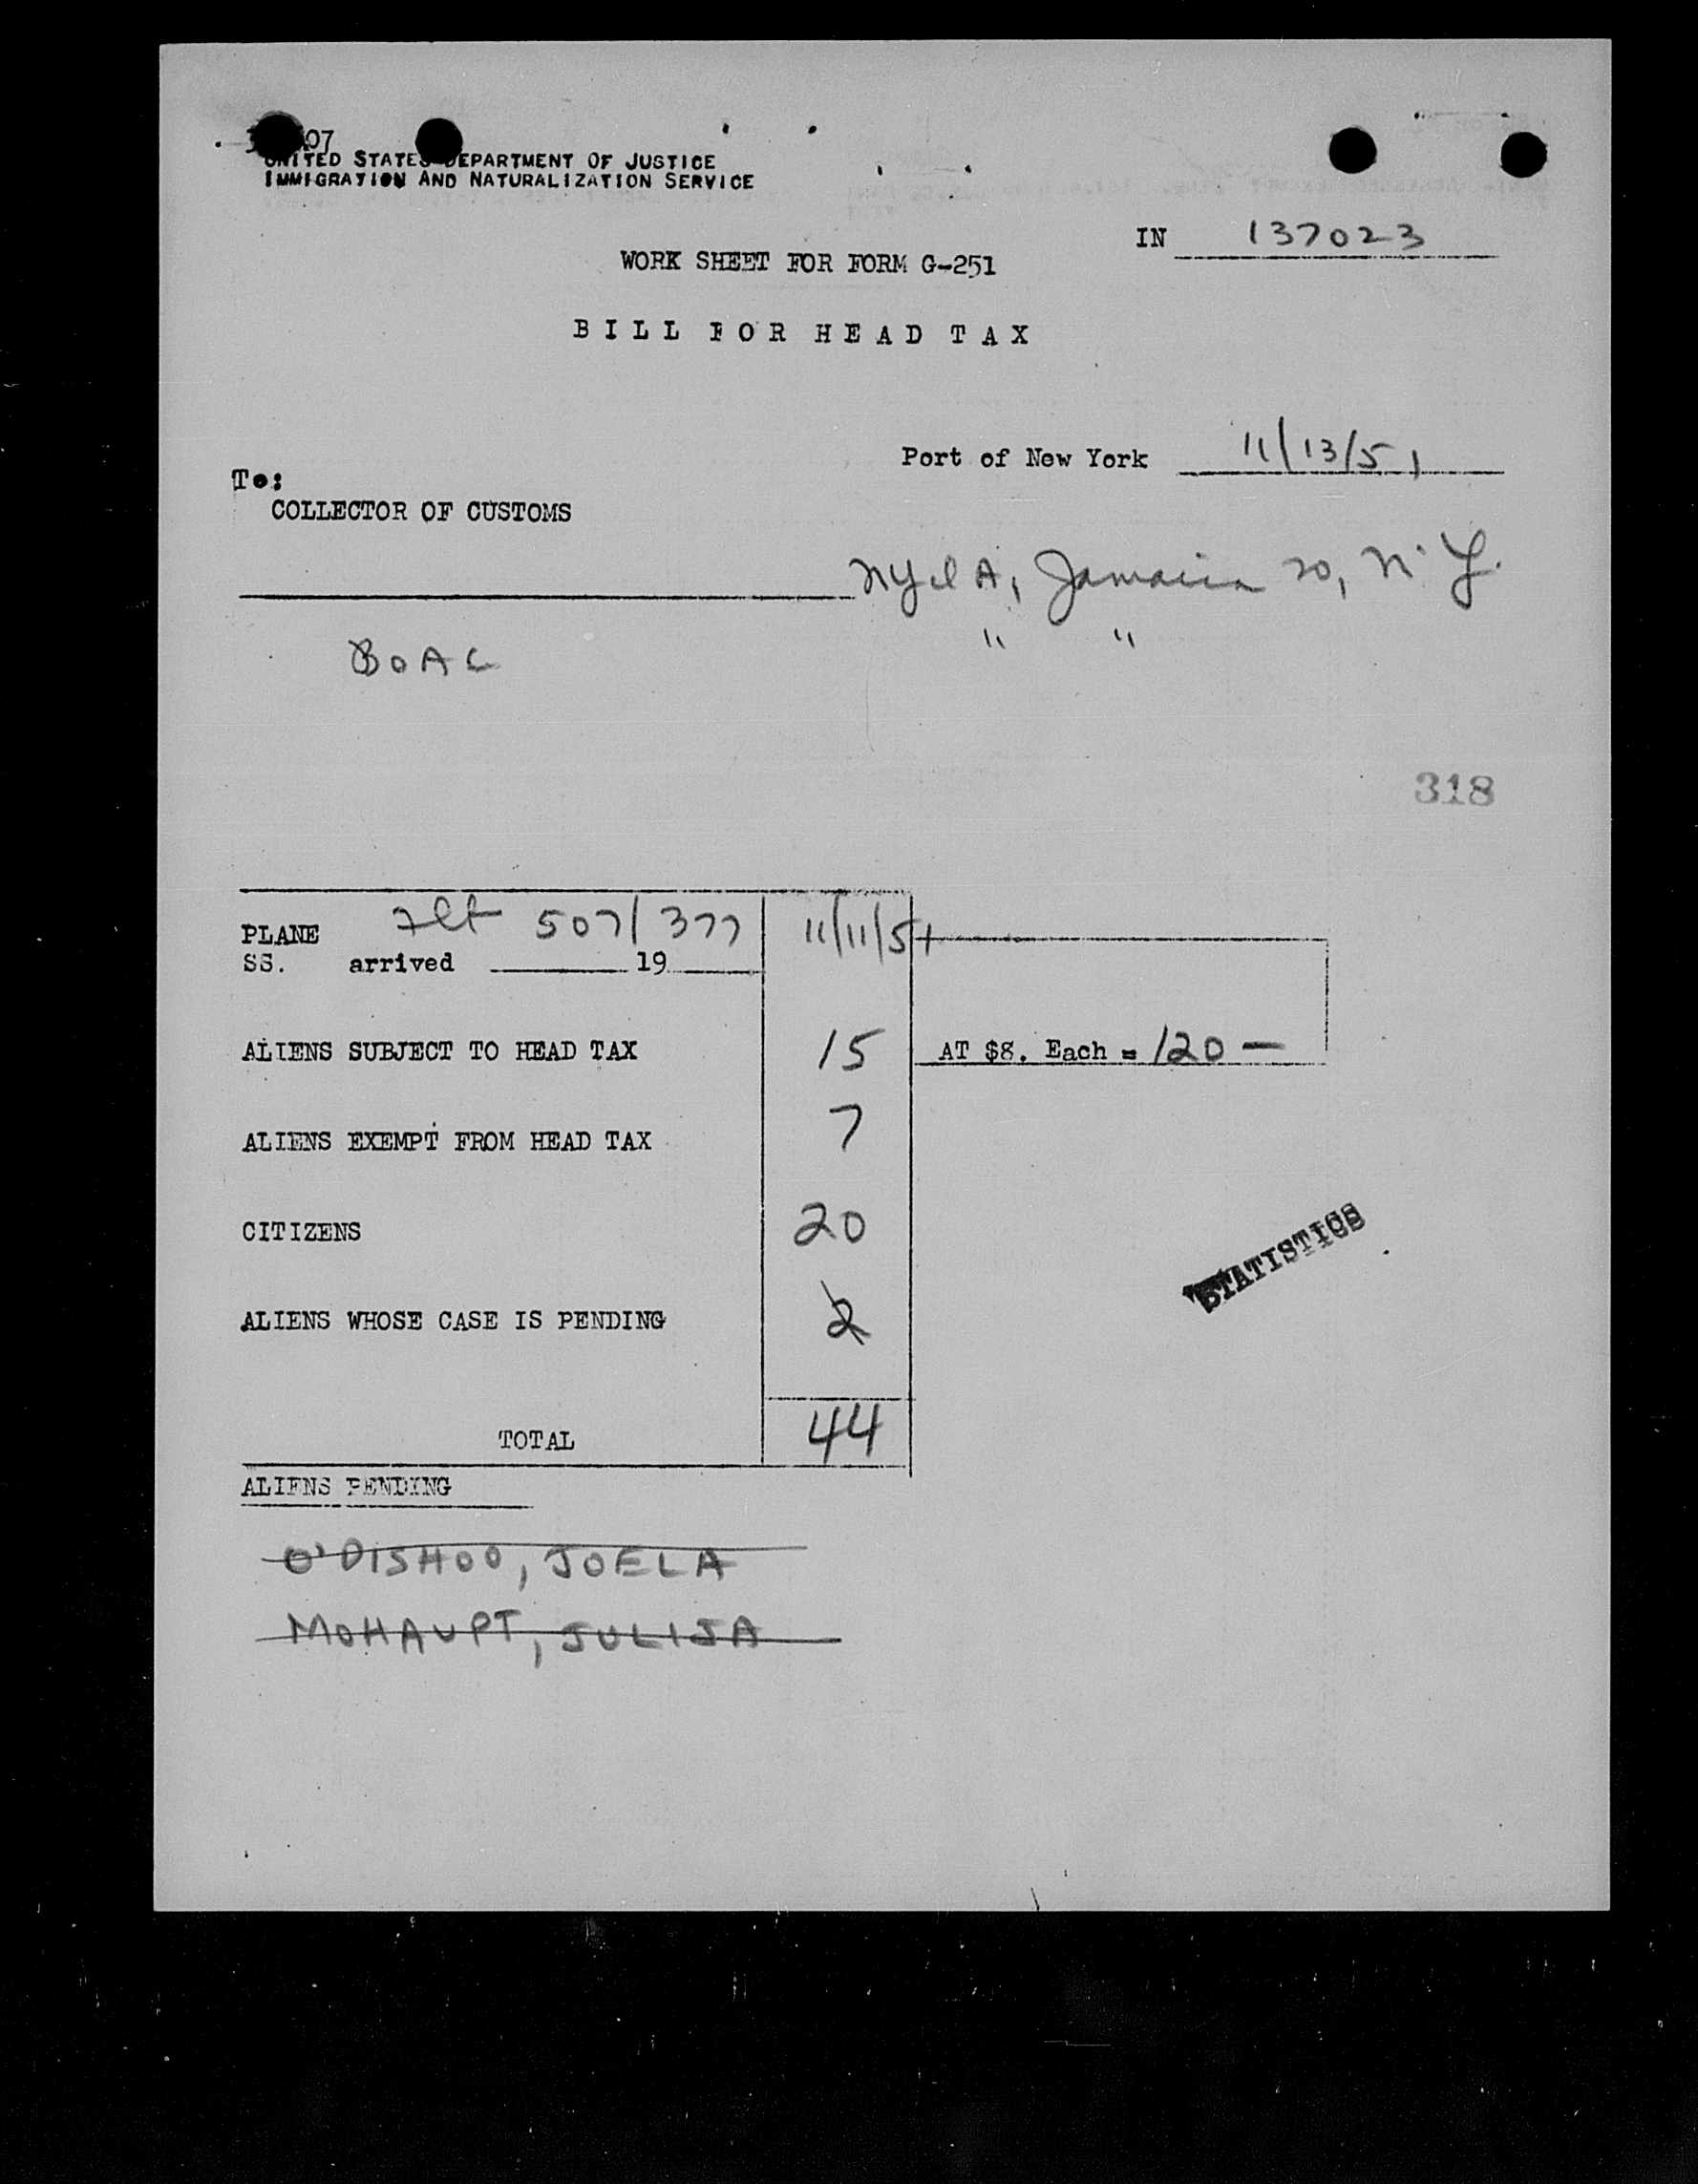 07
UNITED STATES DEPARTMENT OF JUSTICE
IMMIGRATION AND NATURALIZATION SERVICE
IN 137023
WORK SHEET FOR FORM G-251
BILL FOR HEAD TAX
Port of New York 11/13/51
To:
COLLECTOR OF CUSTOMS
Jamaica 20, N.Y.
BOAC " "
318
PLANE Flt 507/377 11/11/51
SS. arrived 19
ALIENS SUBJECT TO HEAD TAX 15 AT $8. Each = 120 —
ALIENS EXEMPT FROM HEAD TAX 7
CITIZENS 20
ALIENS WHOSE CASE IS PENDING 2
STATISTICS
TOTAL 44
ALIENS PENDING
O'DISHOO, JOELA
MOHAUPT, JULIJA